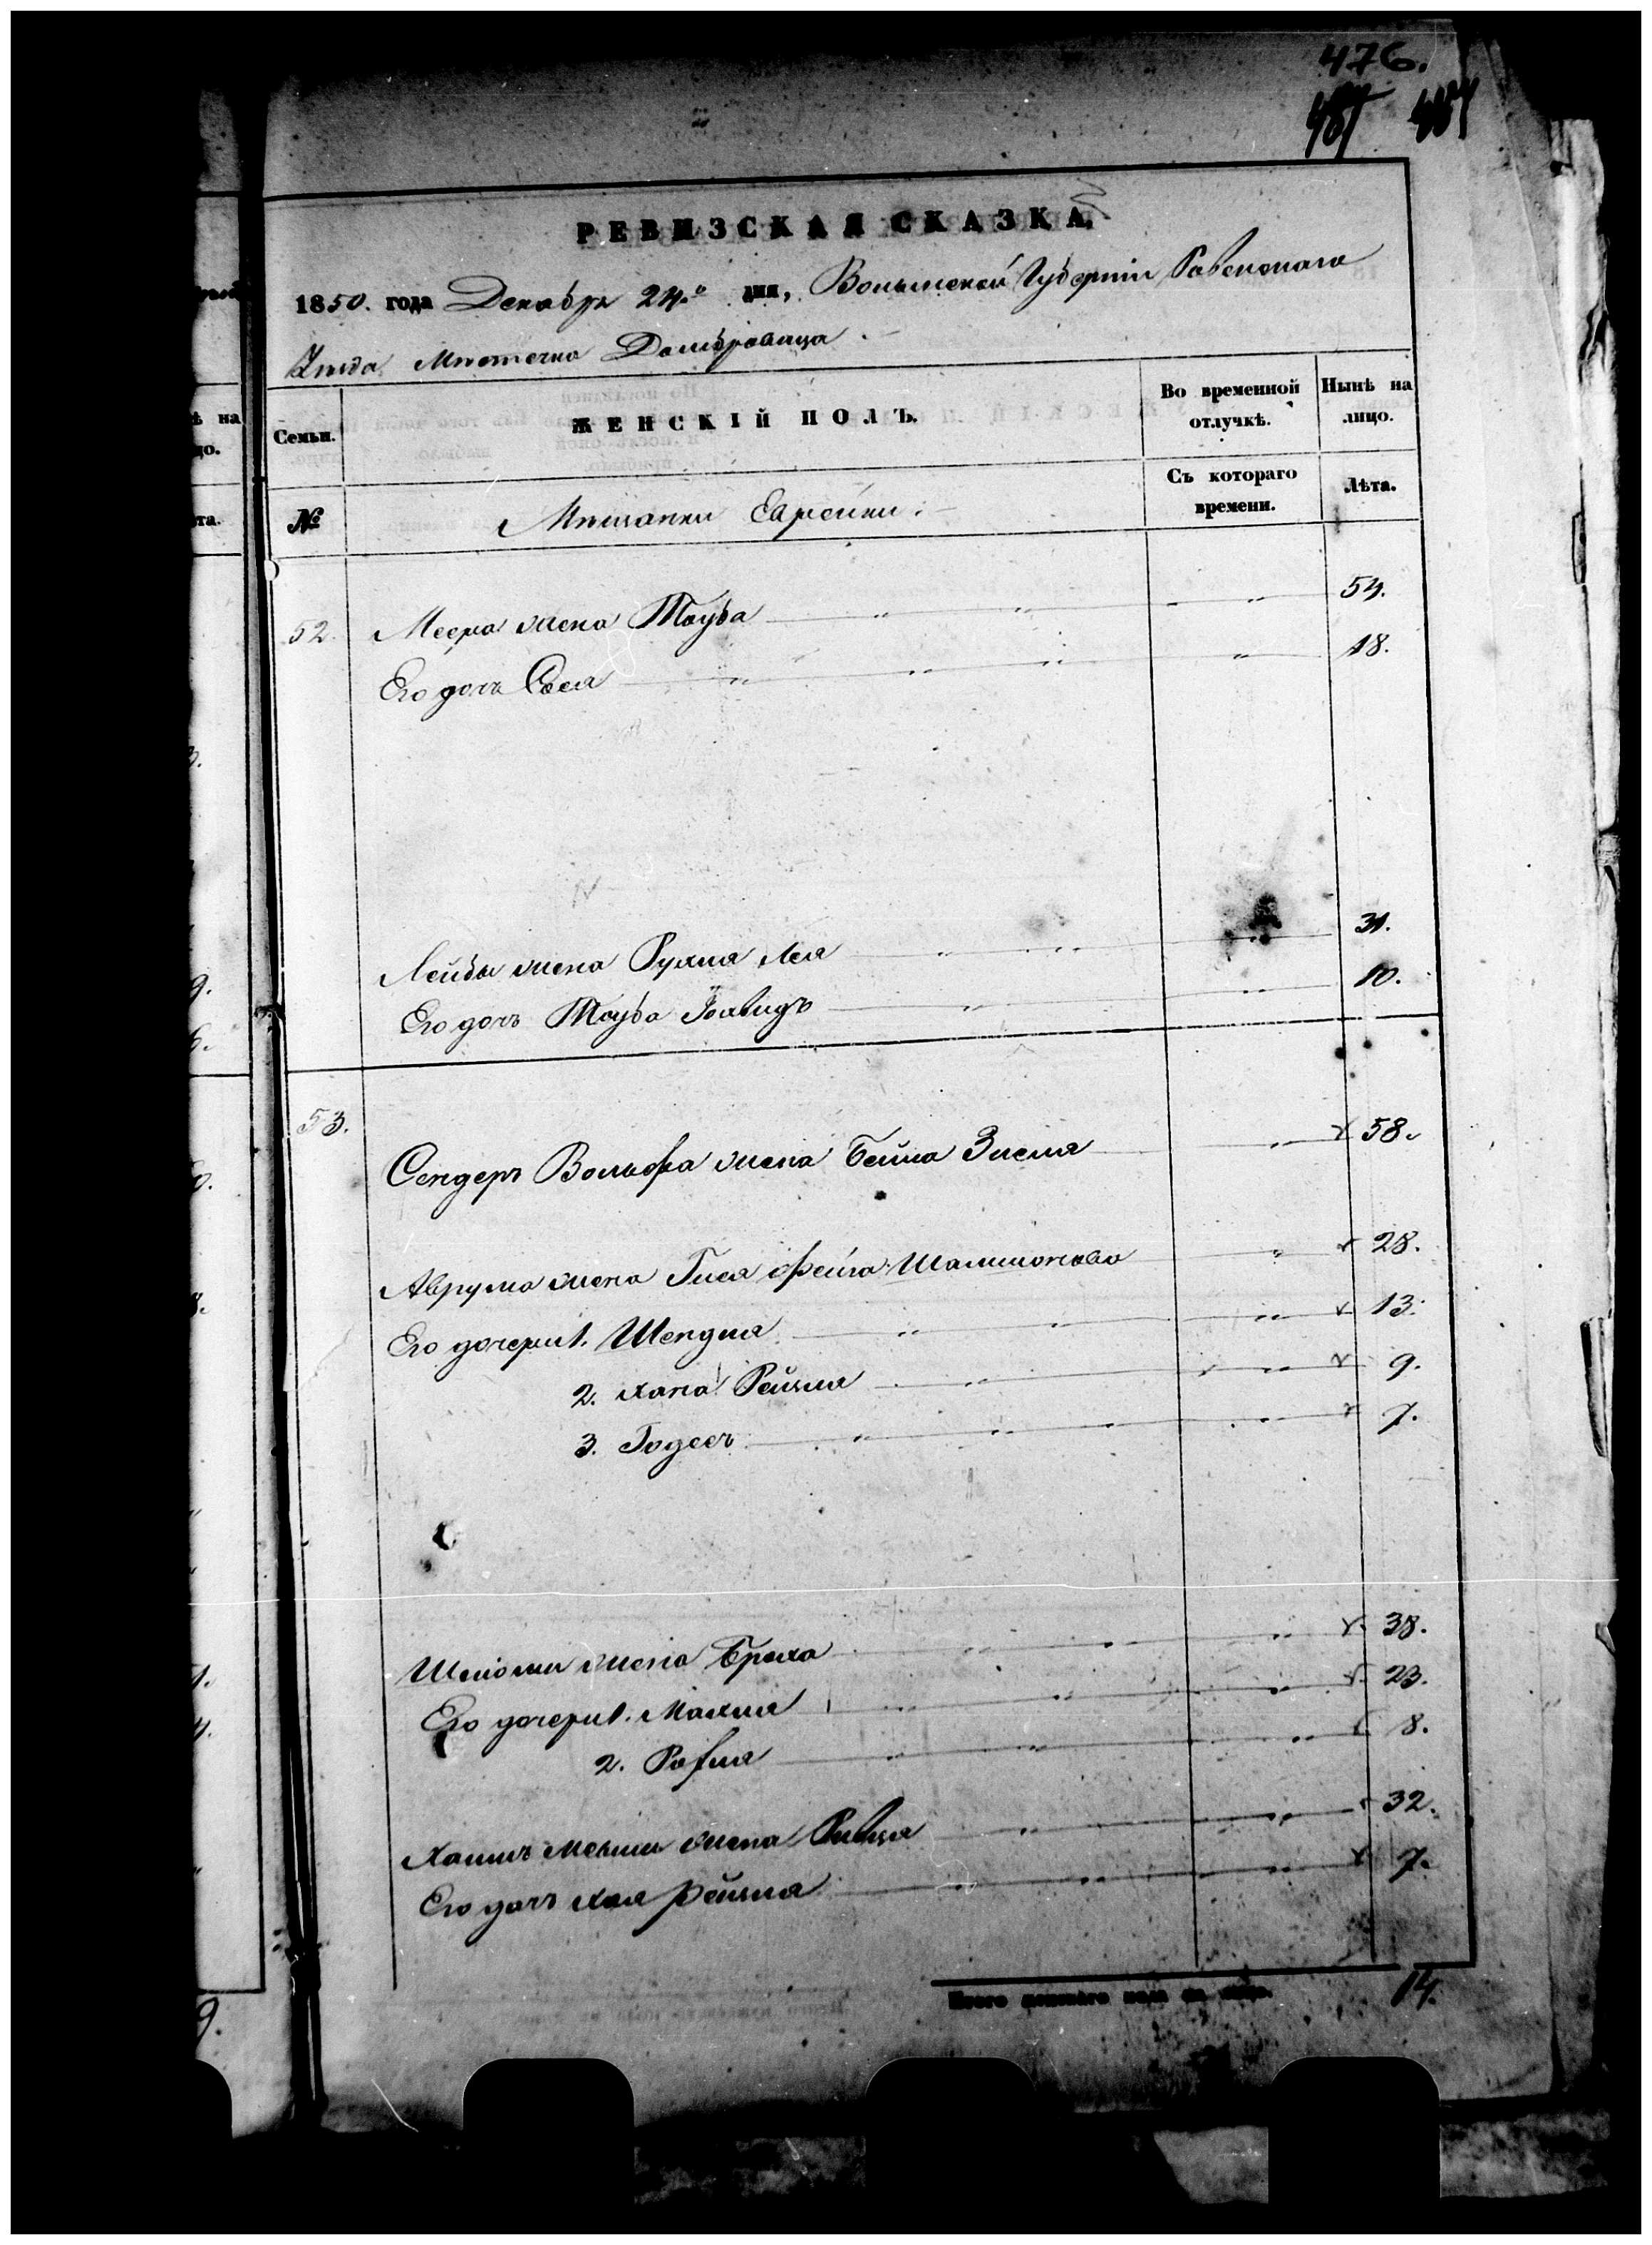 476.
РЕВИЗСКАЯ СКАЗКА,
1850. года Декабря 24.го дня, Волынской Губерніи Ровенскаго
Уезда Мѣстечка Домбровица
Семьи.
ЖЕНСКІЙ ПОЛЪ.
Во временной отлучкѣ.
Нынѣ на лицо.
№
Мѣщанки Еврейки.
Съ котораго времени.
Лѣта.
52. Меера жена Тауба 54.
Его дочь Сося 18.
Лейбы жена Рухля Лея 31.
Его дочь Тауба 10.
53.
Сендеръ Вольфа жена Бейла Злеля 58.
Аврума жена Гися Фейга 28.
Его дочери 1. Шендля 13.
2. Хана Рейзля 9.
3. Годесъ 7.
Шліомы жена Браха 38.
Его дочери 1. Малия 23.
2. Рафля 8.
Хаимъ жена Ривця 32.
Его дочь Хая Рейзля 7.
Итого женскаго пола на лицо. 14.
ѣ на
цо.
та.
9.